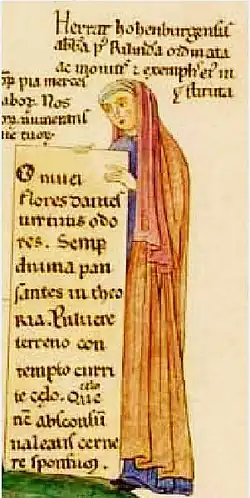 Herrat hohenburgensis
abba p⁹ Rilinda ordinata
ac monit⁊ exempl ei⁹ in
stituta
pia merces
labor. Nos
numerans
O nivei
flores dantes
virtutis odo
res. Semp
divina pau
santes in theo
ria. Pulvere
terreno con
tempto curri
te celo. Que
nc̄ absconsū
valeatis cerne
re sponsum.